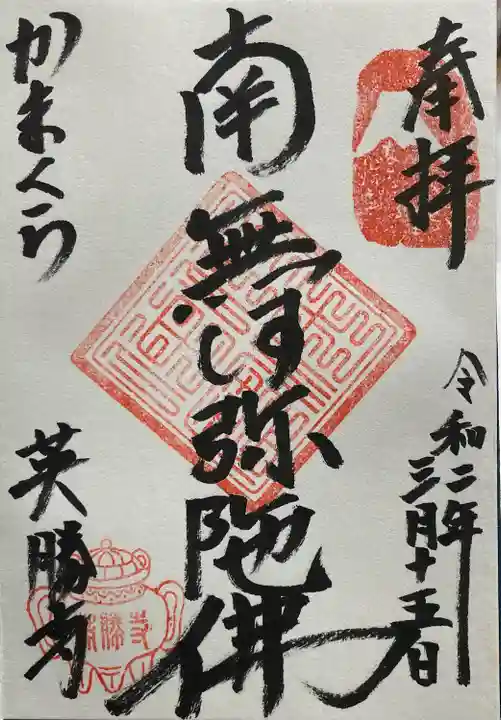 奉拝
令和二年
三月十五日
南無阿弥陀佛
かまくら
英勝寺
英勝寺